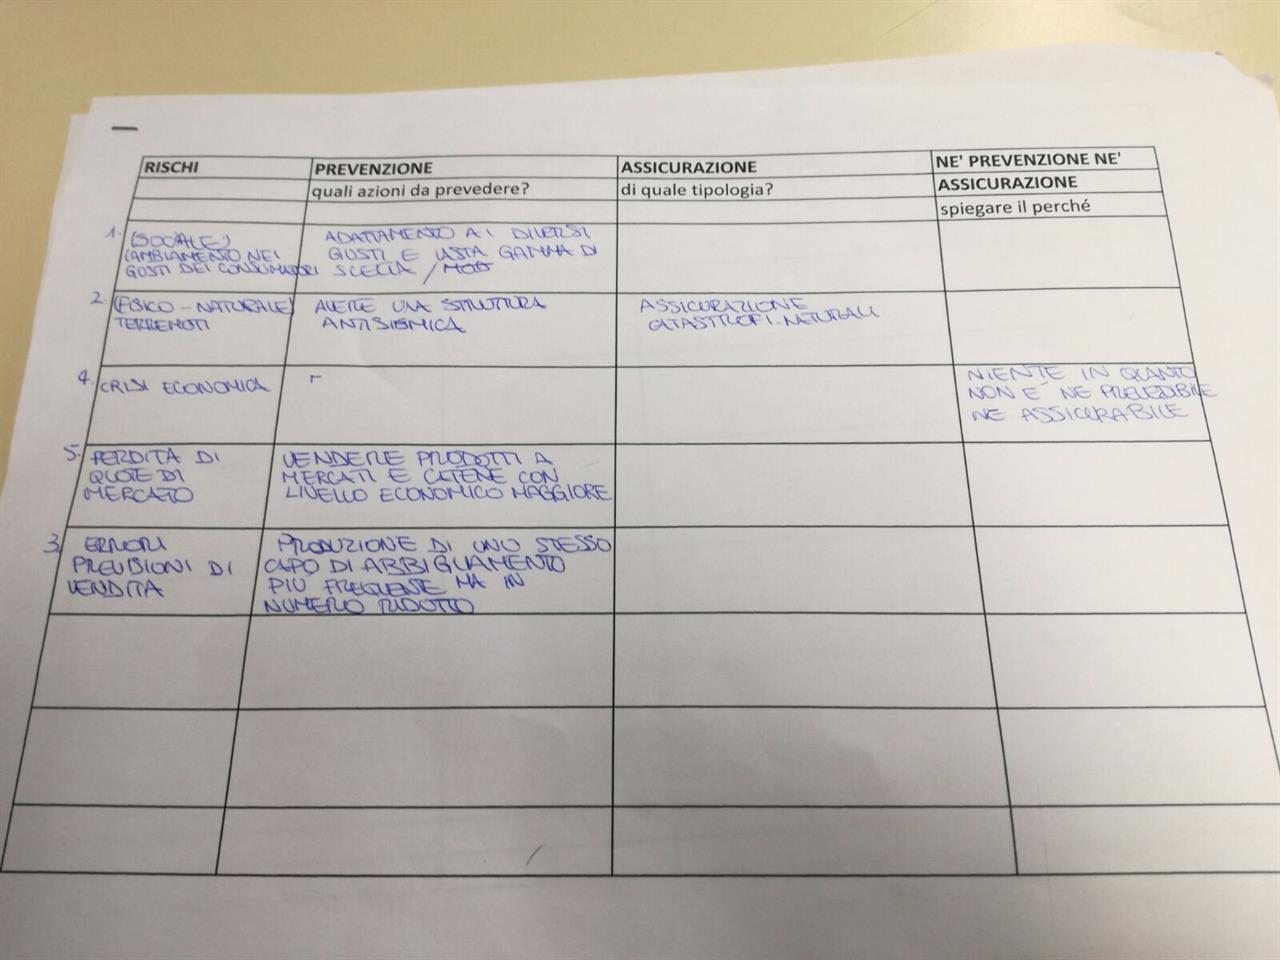 RISCHI PREVENZIONE ASSICURAZIONE NE' PREVENZIONE NE'
quali azioni da prevedere? di quale tipologia? ASSICURAZIONE
spiegare il perché
1. (SOCIALE) ADATTAMENTO AI DIVERSI
CAMBIAMENTO NEI GUSTI E VASTA GAMMA DI
GUSTI DEI CONSUMATORI SCELTA /
2. (FISICO-NATURALE) AVERE UNA STRUTTURA ASSICURAZIONE
TERREMOTI ANTISISMICA CATASTROFI NATURALI
4. CRISI ECONOMICA NIENTE IN QUANTO
NON E' NE PREVEDIBILE
NE ASSICURABILE
5. PERDITA DI VENDERE PRODOTTI A
QUOTE DI MERCATI E CATENE CON
MERCATO LIVELLO ECONOMICO MAGGIORE
3. ERRORI PRODUZIONE DI UNO STESSO
PREVISIONI DI CAPO DI ABBIGLIAMENTO
VENDITA PIÙ FREQUENTE MA IN
NUMERO RIDOTTO